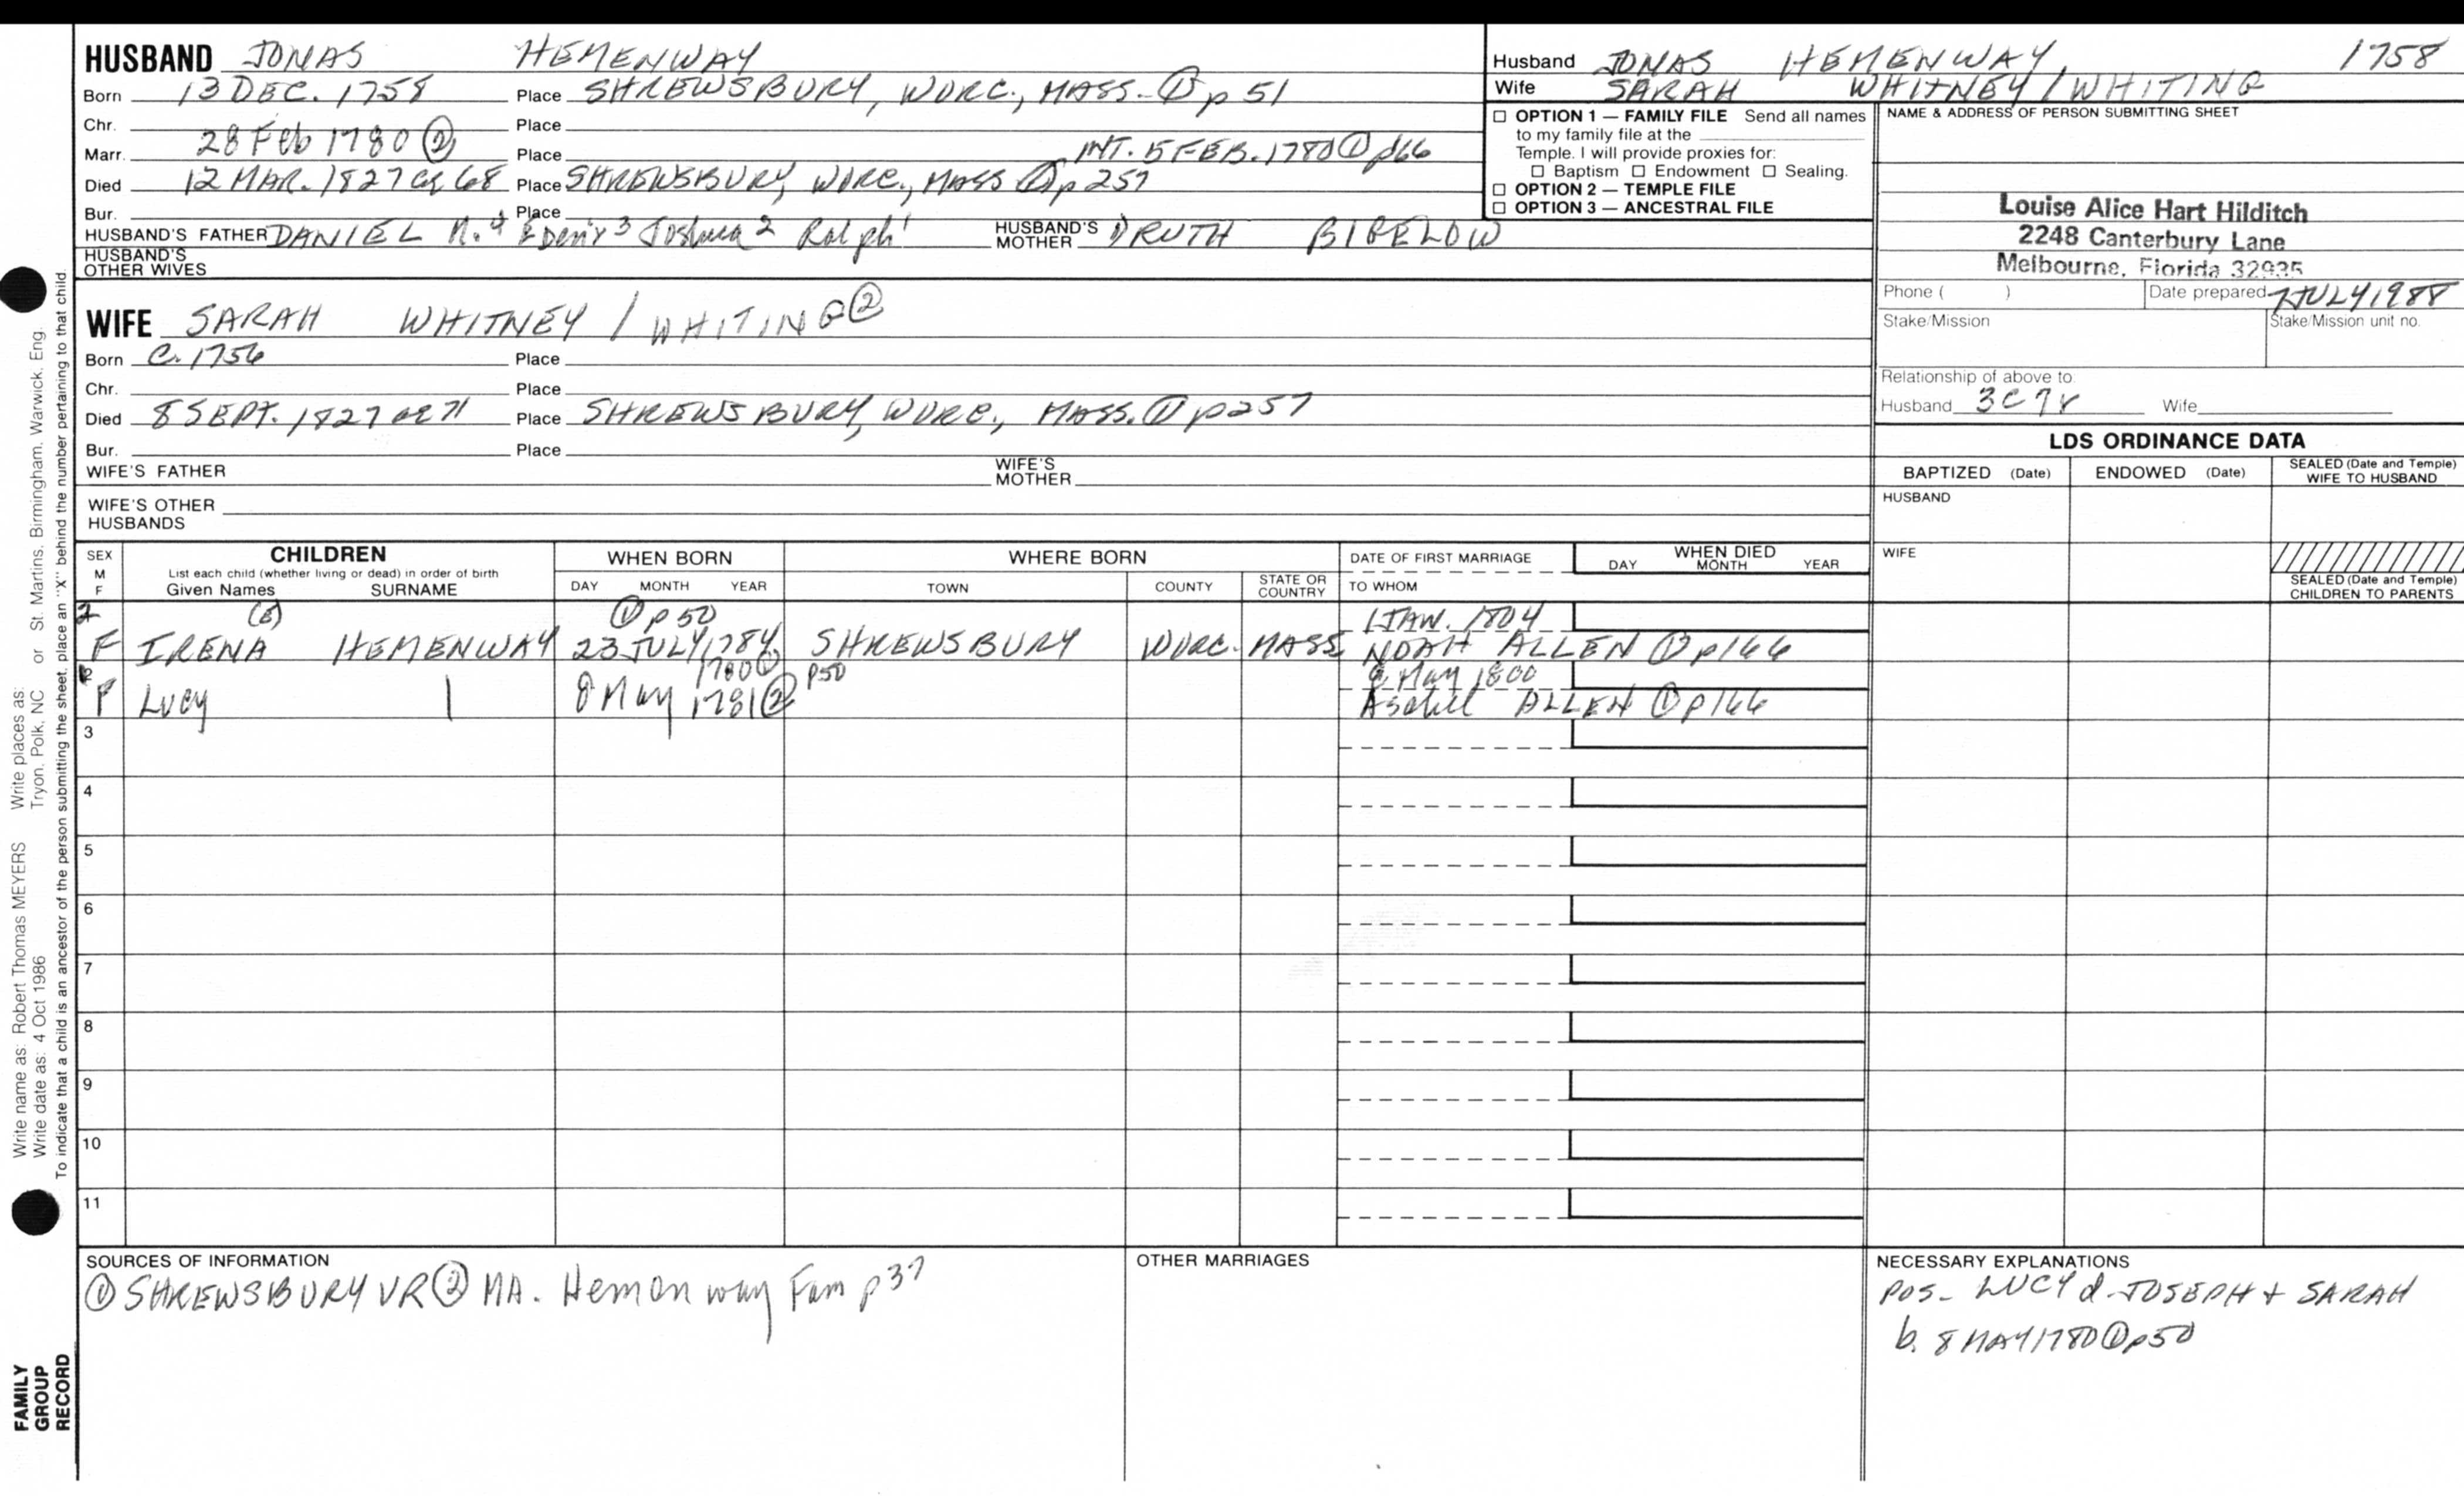 HUSBAND JONAS HEMENWAY
Born 13 DEC. 1758 Place SHREWSBURY, WORC., MASS. ① p 51
Chr. Place
Marr. 28 Feb 1780 ② Place INT. 5 FEB. 1780 ① p166
Died 12 MAR. 1827 ae 68 Place SHREWSBURY, WORC., MASS ① p 257
Bur. Place
HUSBAND'S FATHER DANIEL 4 3 Joshua 2 Ralph 1 HUSBAND'S MOTHER RUTH BIGELOW
HUSBAND'S OTHER WIVES
WIFE SARAH WHITNEY / WHITING ②
Born C. 1756 Place
Chr. Place
Died 8 SEPT. 1827 ae 71 Place SHREWSBURY, WORC., MASS. ① p257
Bur. Place
WIFE'S FATHER WIFE'S MOTHER
WIFE'S OTHER HUSBANDS
Husband JONAS HEMENWAY 1758
Wife SARAH WHITNEY / WHITING
☐ OPTION 1 — FAMILY FILE Send all names
to my family file at the
Temple. I will provide proxies for:
☐ Baptism ☐ Endowment ☐ Sealing.
☐ OPTION 2 — TEMPLE FILE
☐ OPTION 3 — ANCESTRAL FILE
NAME & ADDRESS OF PERSON SUBMITTING SHEET
Louise Alice Hart Hilditch
2248 Canterbury Lane
Melbourne, Florida 32935
Phone ( ) Date prepared 7 JULY 1988
Stake/Mission Stake/Mission unit no.
Relationship of above to:
Husband 3C7r Wife
LDS ORDINANCE DATA
BAPTIZED (Date) ENDOWED (Date) SEALED (Date and Temple) WIFE TO HUSBAND
HUSBAND
WIFE
SEALED (Date and Temple) CHILDREN TO PARENTS
SEX M F
CHILDREN
List each child (whether living or dead) in order of birth
Given Names SURNAME
WHEN BORN
DAY MONTH YEAR
WHERE BORN
TOWN COUNTY STATE OR COUNTRY
DATE OF FIRST MARRIAGE
TO WHOM
WHEN DIED
DAY MONTH YEAR
① p 50 1 JAN. 1804
F IRENA HEMENWAY 23 JULY 1784 SHREWSBURY WORC. MASS NOAH ALLEN ① p166
2 1780 ① p50 May 1800
F Lucy | 8 May 1781 ② Asahell ALLEN ① p166
3
4
5
6
7
8
9
10
11
SOURCES OF INFORMATION
① SHREWSBURY VR ② MA. Hemenway Fam p 37
OTHER MARRIAGES
NECESSARY EXPLANATIONS
POS- LUCY d. JOSEPH + SARAH
b. 8 MAY 1780 ① p50
Write name as: Robert Thomas MEYERS Write places as: Tryon, Polk, NC or St. Martins, Birmingham, Warwick, Eng.
Write date as: 4 Oct 1986
To indicate that a child is an ancestor of the person submitting the sheet, place an "X" behind the number pertaining to that child.
FAMILY
GROUP
RECORD